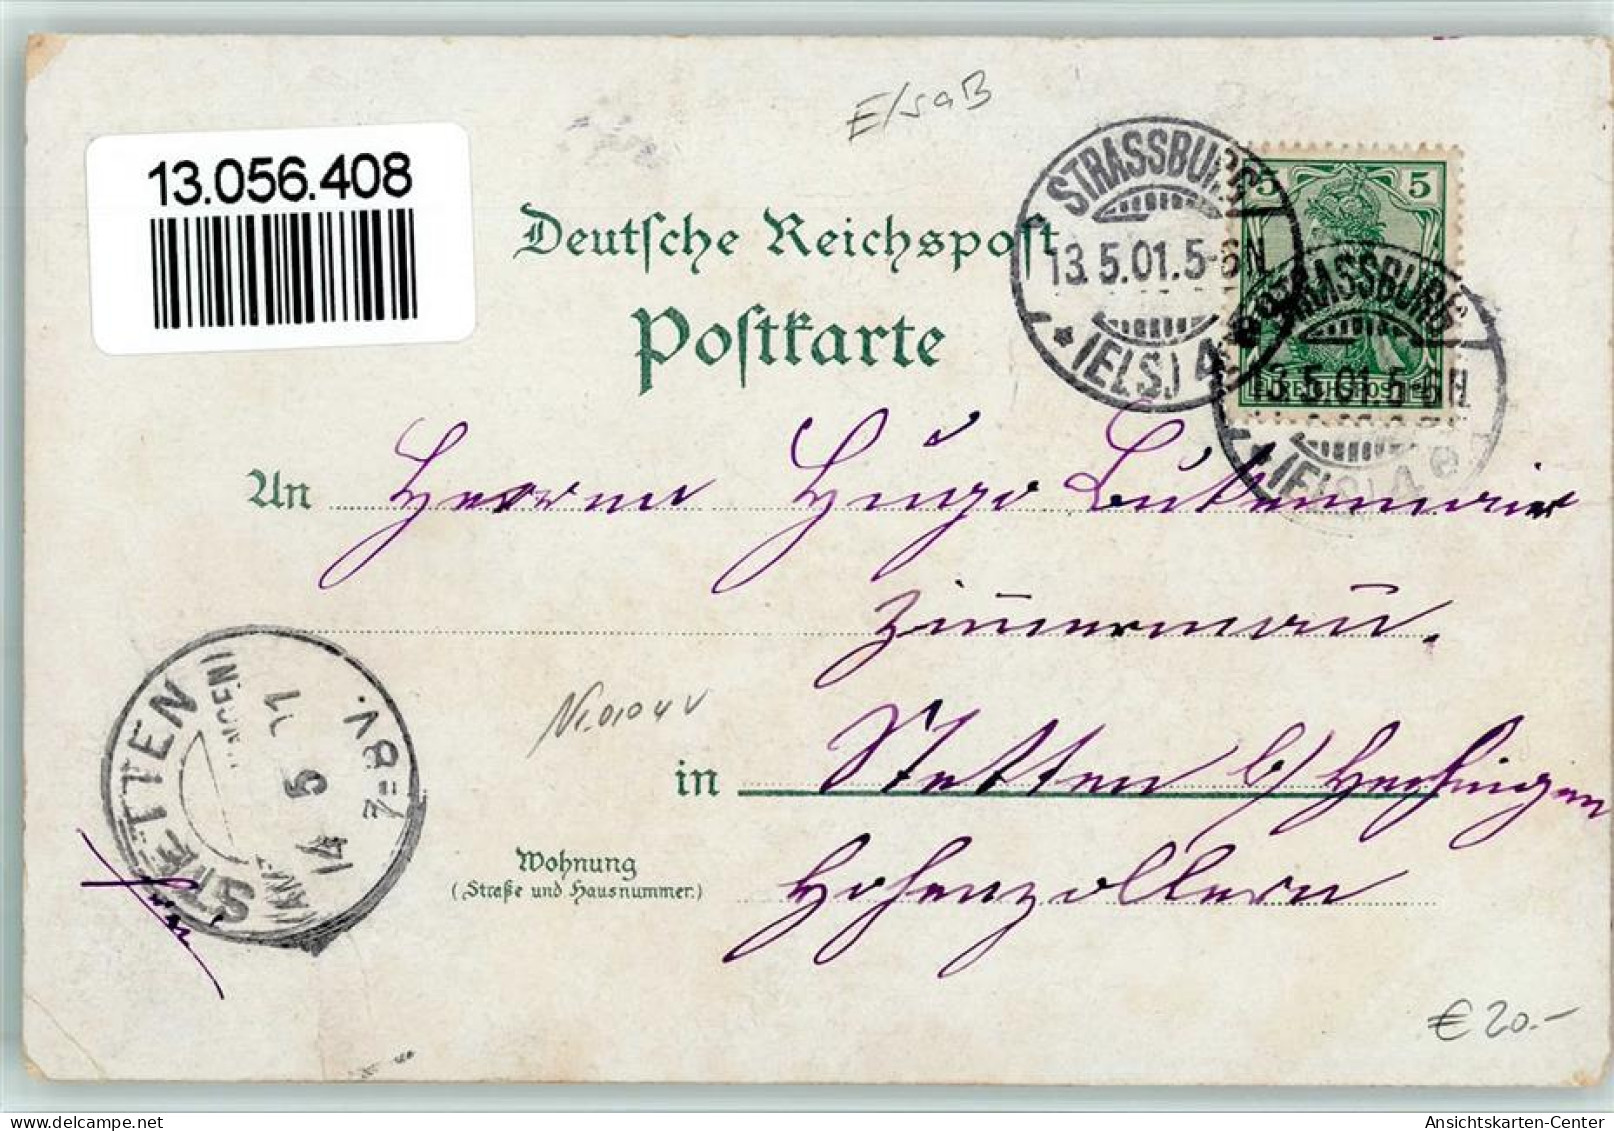 13.056.408
Elsaß
Deutsche Reichspost
Postkarte
STRASSBURG
13.5.01.5-6N
* (ELS.) 4
5 5
REICHSPOST
STRASSBURG
13.5.01.5-6N
* (ELS.) 4 e
An Herrn Hugo
Zimmermann.
in Stetten b/ Hechingen
Wohnung
(Straße und Hausnummer.)
Hohenzollern
STETTEN
14 5 01
7-8V.
€ 20.-
Ansichtskarten-Center